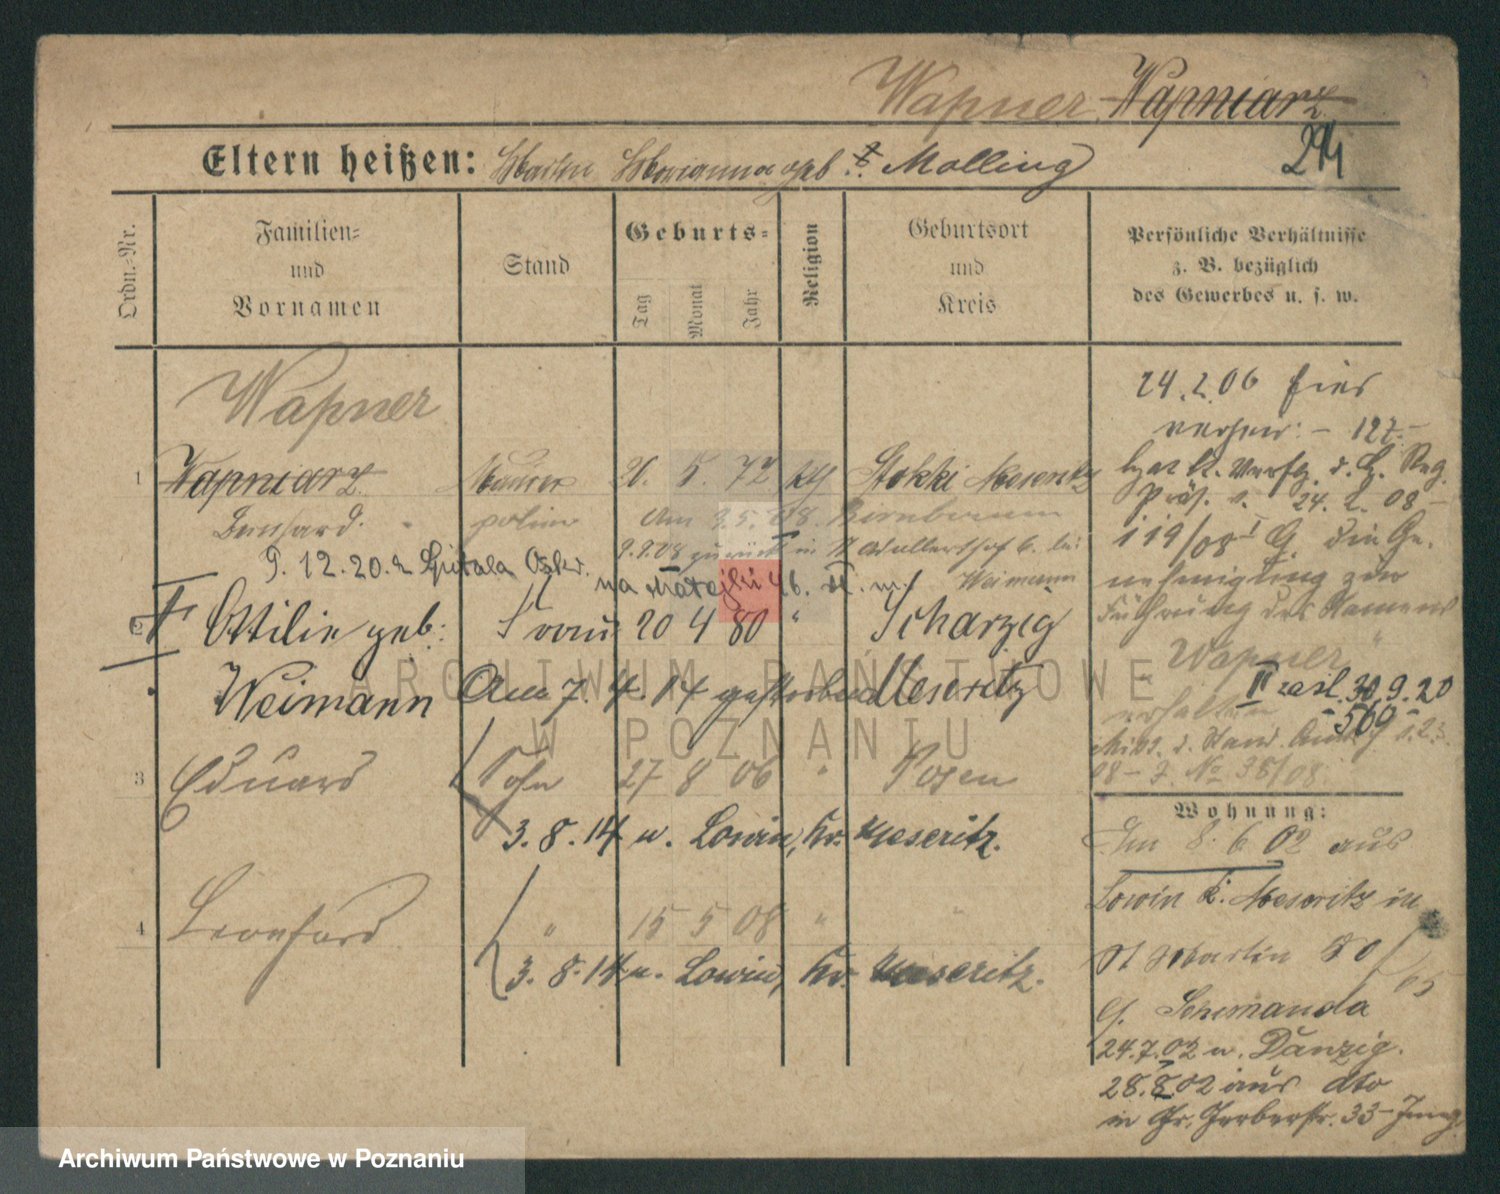 Wapner Wapniarz
Eltern heißen: Martin Marianna geb. Molling
274
Ordn.-Nr.
Familien-
und
Vornamen
Stand
Geburts-
Tag
Monat
Jahr
Religion
Geburtsort
und
Kreis
Persönliche Verhältnisse
z. B. bezüglich
des Gewerbes u. s. w.
Wapner
1 Wapniarz Maurer 5. 72 kth Stokki Meseritz
Bernhard polier Am 9.5.08. Birnbaum
9.9.08 zurück in
9.12.20. z Szpitala
na Matejki 46. II. m.
Weimann
Ottilie geb. Frau 20 4 80 " Scharzig
Weimann Am 7. 4. 14 gestorben Meseritz
3 Eduard Sohn 27 8 06 " Posen
3. 8. 14 n. Lowin, Kr. Meseritz.
4 Leonhard " 15 5 08 " "
3. 8. 14 n. Lowin, Kr. Meseritz.
24.2.06 hier
127.-
lgt lt. Verfg. d. K. Reg.
Präs. v. 24. 2. 08
119/08 I G. die Ge-
nehmigung zur
Führung des Namens
"Wapner"
erhalten
II zaśl. 30.9.20
569
08 - J. No 38/08
Wohnung:
Am 8. 6 02 aus
Lowin K. Meseritz in
St Martin
/05
b/. Schimanda
24.7.02 n. Danzig.
28.8.02 aus dto
in Gr. Gerberstr. 33-
ARCHIWUM PAŃSTWOWE
W POZNANIU
Archiwum Państwowe w Poznaniu